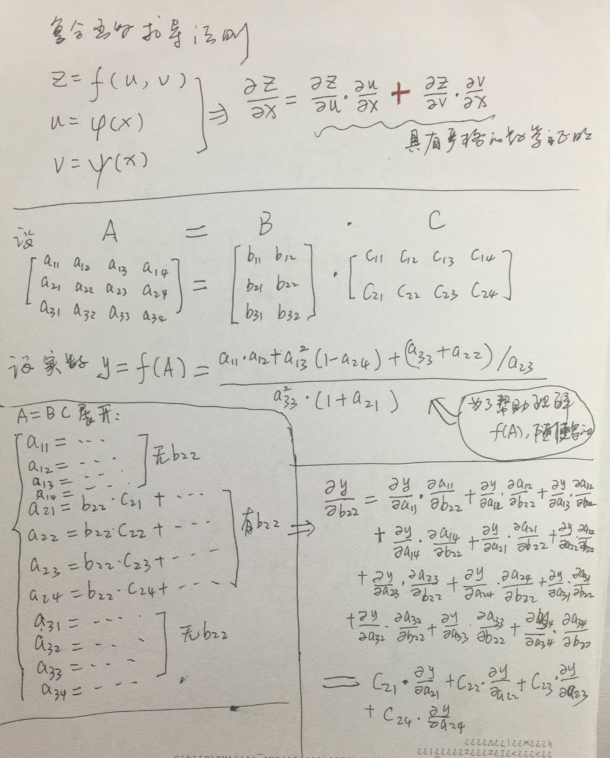 复合函数求导法则
z = f(u, v)
u = φ(x)
v = ψ(x)
⇒ ∂z/∂x = ∂z/∂u · ∂u/∂x + ∂z/∂v · ∂v/∂x
具有严格的数学证明
设 A = B · C
[a11 a12 a13 a14] = [b11 b12] · [c11 c12 c13 c14]
[a21 a22 a23 a24] [b21 b22] [c21 c22 c23 c24]
[a31 a32 a33 a34] [b31 b32]
设实数 y = f(A) = (a11·a12 + a13²(1-a24) + (a33+a22)/a23) / (a33²·(1+a21))
为了帮助理解
f(A), 随便写的
A = BC 展开:
a11 = ...
a12 = ...
a13 = ...
a14 = ...
无b22
a21 = b22·c21 + ...
a22 = b22·c22 + ...
a23 = b22·c23 + ...
a24 = b22·c24 + ...
有b22
a31 = ...
a32 = ...
a33 = ...
a34 = ...
无b22
⇒ ∂y/∂b22 = ∂y/∂a11 · ∂a11/∂b22 + ∂y/∂a12 · ∂a12/∂b22 + ∂y/∂a13 · ∂a12/∂b22
+ ∂y/∂a14 · ∂a14/∂b22 + ∂y/∂a21 · ∂a21/∂b22 + ∂y/∂a22 · ∂a22/∂b22
+ ∂y/∂a23 · ∂a23/∂b22 + ∂y/∂a24 · ∂a24/∂b22 + ∂y/∂a31 · ∂a31/∂b22
+ ∂y/∂a32 · ∂a32/∂b22 + ∂y/∂a33 · ∂a33/∂b22 + ∂y/∂a34 · ∂a34/∂b22
= c21 · ∂y/∂a21 + c22 · ∂y/∂a22 + c23 · ∂y/∂a23
+ c24 · ∂y/∂a24